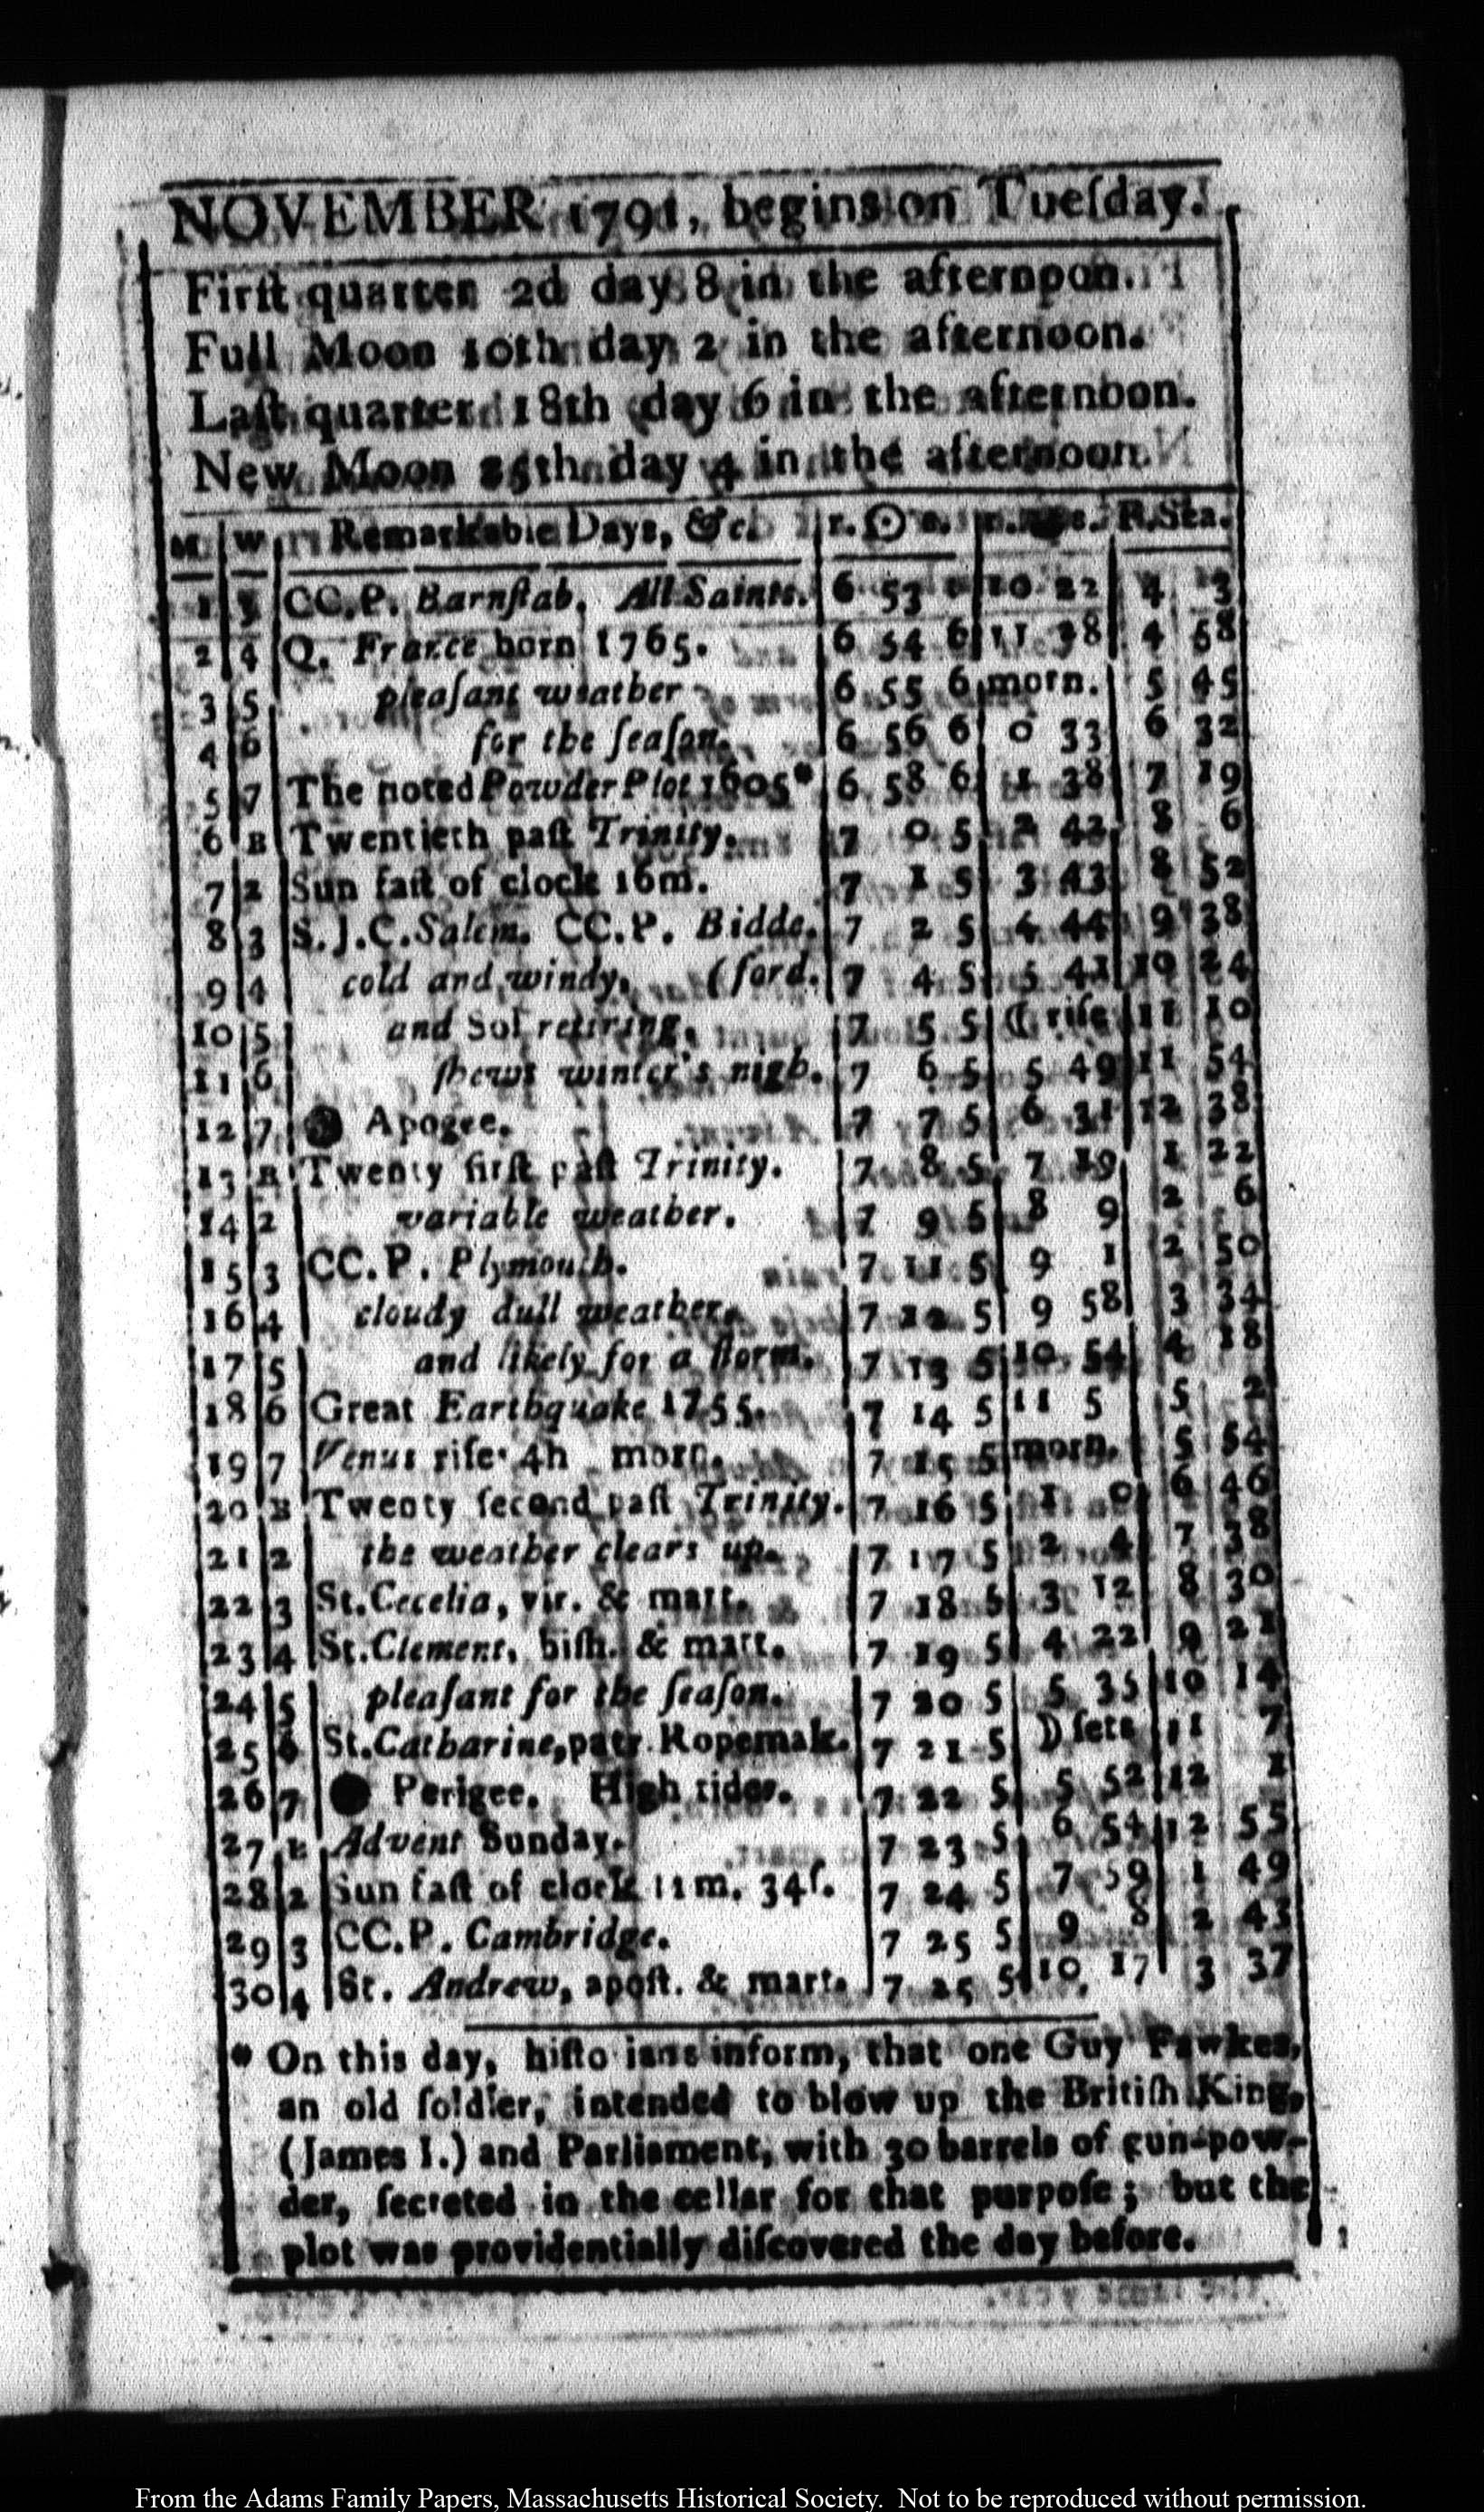 NOVEMBER 1791, begins on Tueſday.
Firſt quarter 2d day 8 in the afternoon.
Full Moon 10th day 2 in the afternoon.
Laſt quarter 18th day 6 in the afternoon.
New Moon 25th day 4 in the afternoon.
M W Remarkable Days, &c. r. ☉ s. R.Sta.
1 3 CC.P. Barnſtab. All Saints. 6 53 10 22 4 13
2 4 Q. France born 1765. 6 54 6 11 28 4 58
3 5 pleaſant weather 6 55 6 morn. 5 45
4 6 for the ſeaſon. 6 56 6 0 33 6 32
5 7 The noted Powder Plot 1605* 6 58 6 1 38 7 19
6 B Twentieth paſt Trinity. 7 0 5 2 42 8 6
7 2 Sun faſt of clock 16m. 7 1 5 3 43 8 52
8 3 S.J.C. Salem. CC.P. Bidde. 7 2 5 4 44 9 38
9 4 cold and windy. (ford. 7 4 5 5 41 10 24
10 5 and Sol retiring, 7 5 5 ☾ riſe 11 10
11 6 ſhews winter's nigh. 7 6 5 5 49 11 54
12 7 ● Apogee. 7 7 5 6 31 12 38
13 B Twenty firſt paſt Trinity. 7 8 5 7 19 1 22
14 2 variable weather. 7 9 5 8 9 2 6
15 3 CC.P. Plymouth. 7 11 5 9 1 2 50
16 4 cloudy dull weather, 7 12 5 9 58 3 34
17 5 and likely for a ſtorm. 7 13 5 10 54 4 18
18 6 Great Earthquake 1755. 7 14 5 11 5 5 2
19 7 Venus riſe 4h morn. 7 15 5 morn. 5 54
20 B Twenty ſecond paſt Trinity. 7 16 5 1 0 6 46
21 2 the weather clears up. 7 17 5 2 4 7 38
22 3 St. Cecelia, vir. & mart. 7 18 5 3 12 8 30
23 4 St. Clement, biſh. & mart. 7 19 5 4 22 9 21
24 5 pleaſant for the ſeaſon. 7 20 5 5 35 10 14
25 6 St. Catharine, patr. Ropemak. 7 21 5 ☽ ſets 11 7
26 7 ● Perigee. High tides. 7 22 5 5 52 12 1
27 B Advent Sunday. 7 23 5 6 54 12 55
28 2 Sun faſt of clock 11m. 34ſ. 7 24 5 7 59 1 49
29 3 CC.P. Cambridge. 7 25 5 9 8 2 43
30 4 St. Andrew, apoſt. & mart. 7 25 5 10 17 3 37
* On this day, hiſtorians inform, that one Guy Fawkes,
an old ſoldier, intended to blow up the Britiſh King,
(James I.) and Parliament, with 30 barrels of gun-pow-
der, ſecreted in the cellar for that purpoſe; but the
plot was providentially diſcovered the day before.
From the Adams Family Papers, Massachusetts Historical Society. Not to be reproduced without permission.